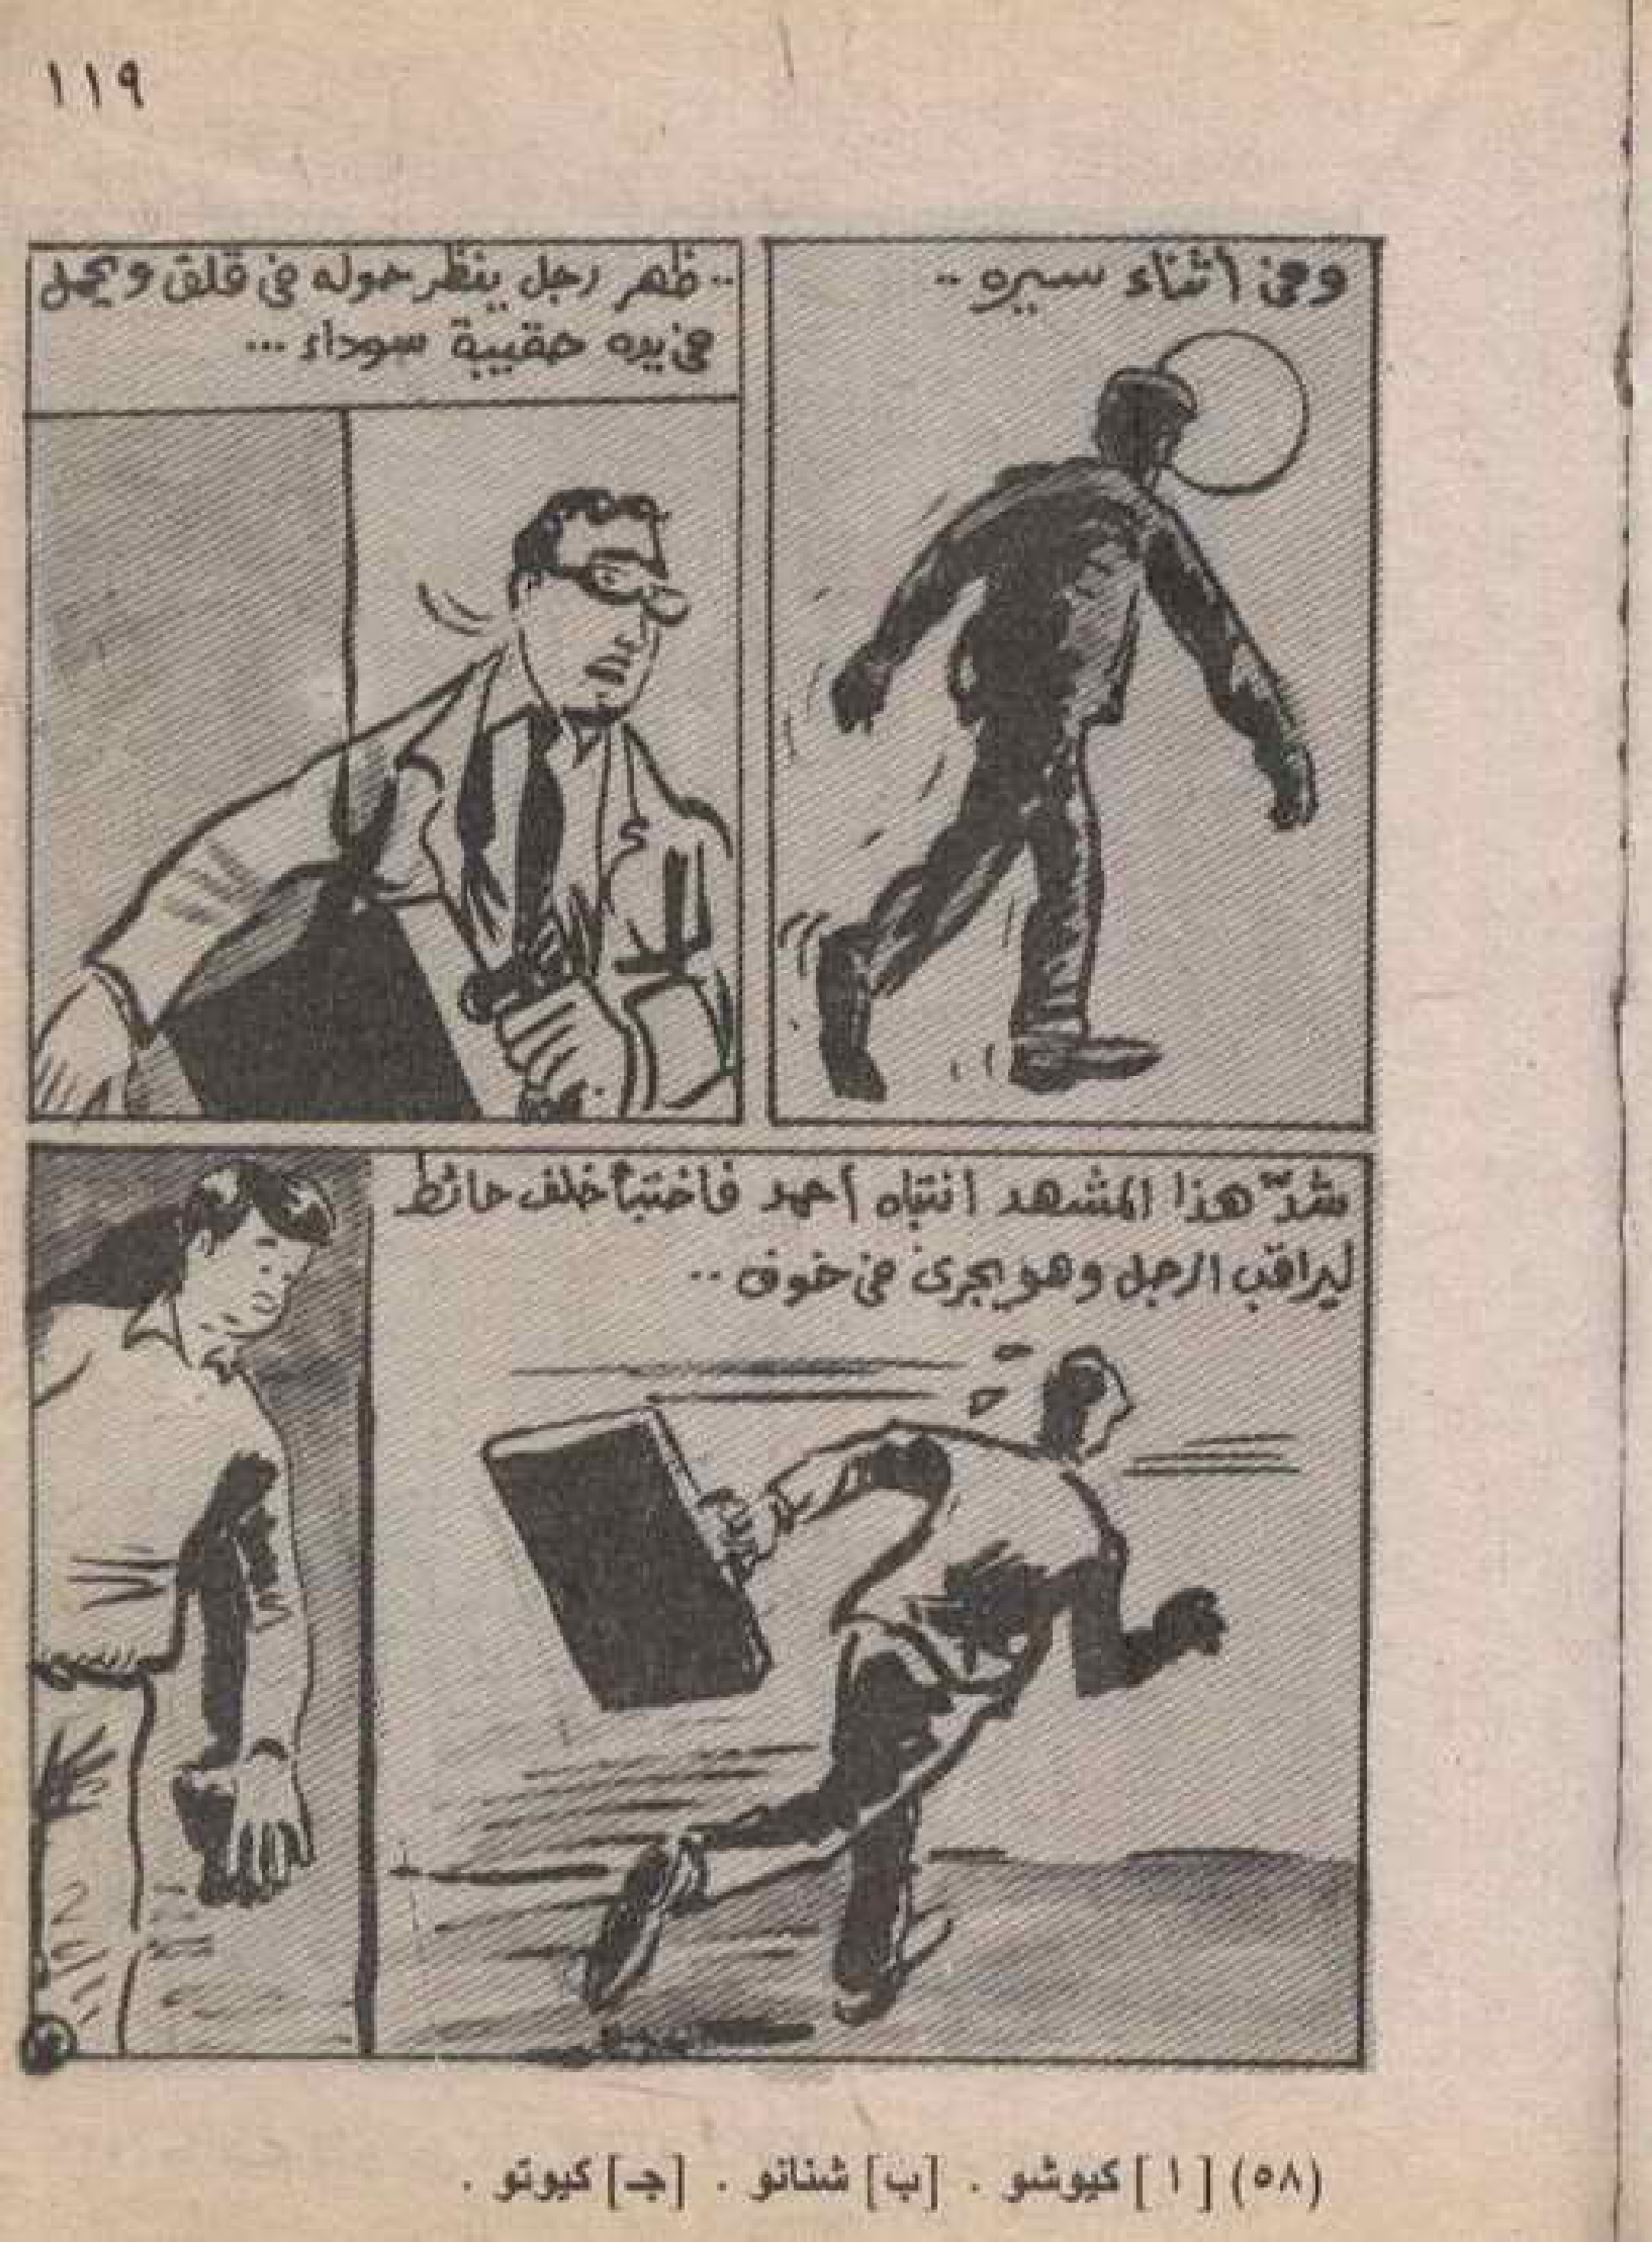 ١١٩
وفى أثناء سيره ..
.. ظهر رجل ينظر حوله فى قلق ويحمل
فى يده حقيبة سوداء ...
شدّ هذا المشهد انتباه أحمد فاختبأ خلف حائط
ليراقب الرجل وهو يجرى فى خوف ..
(٥٨) [ ا ] كيوشو . [ب] شنانو . [جـ] كيوتو .